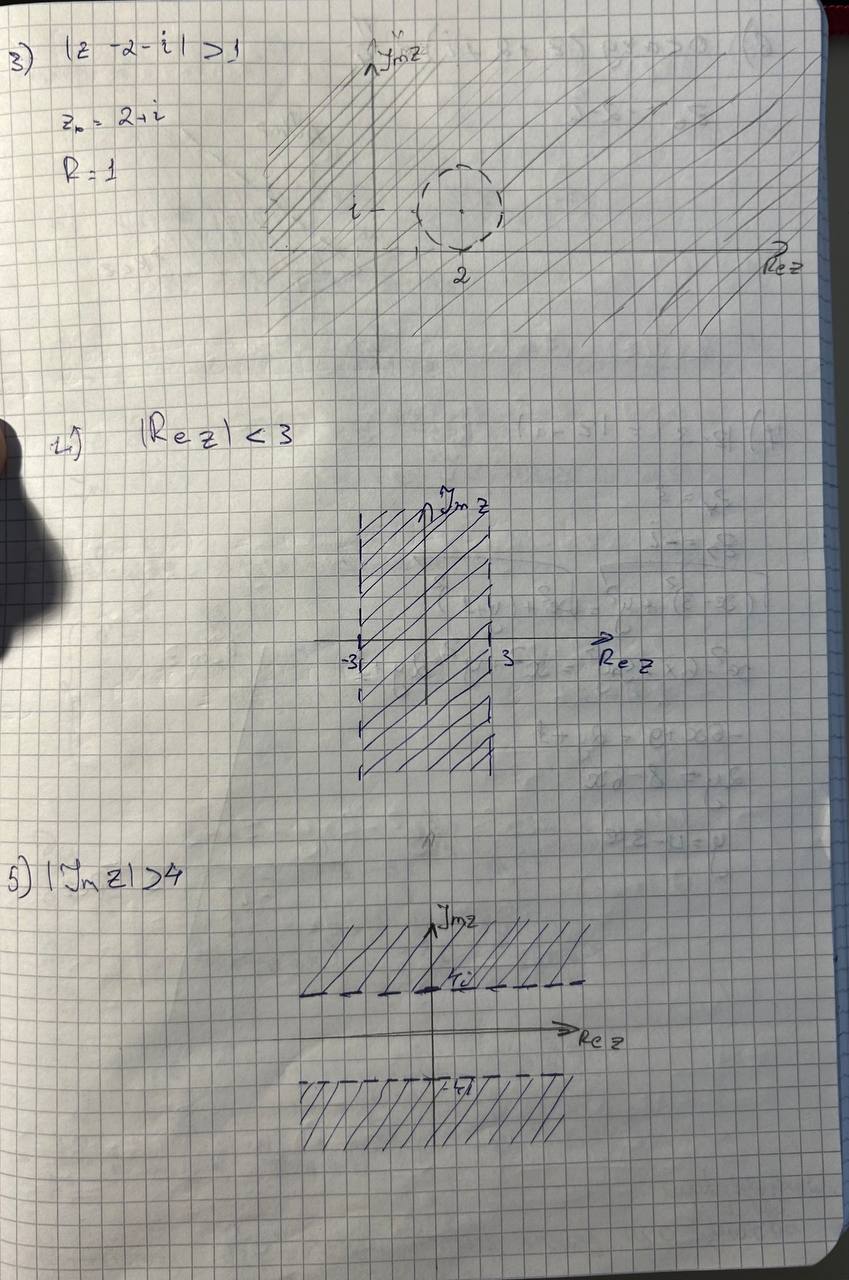 3) |z -2-i| >1
z₀ = 2+i
R=1
Jmz
i
2
Rez
4) |Re z| < 3
Jmz
-3
3
Rez
5) |Jm z| >4
Jmz
4i
Rez
-4i